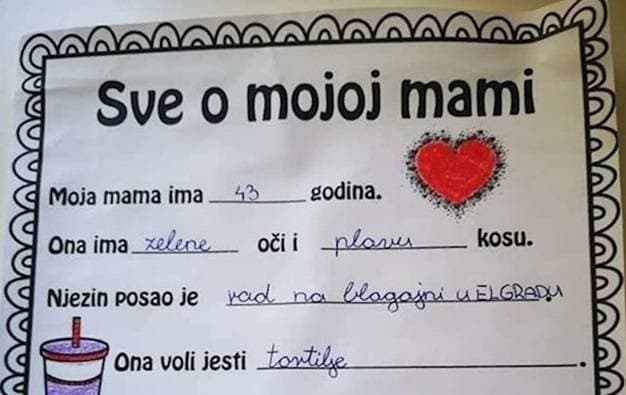 Sve o mojoj mami
Moja mama ima 43 godina.
Ona ima zelene oči i plavu kosu.
Njezin posao je rad na blagajni u ELGRADU
Ona voli jesti tortilje.